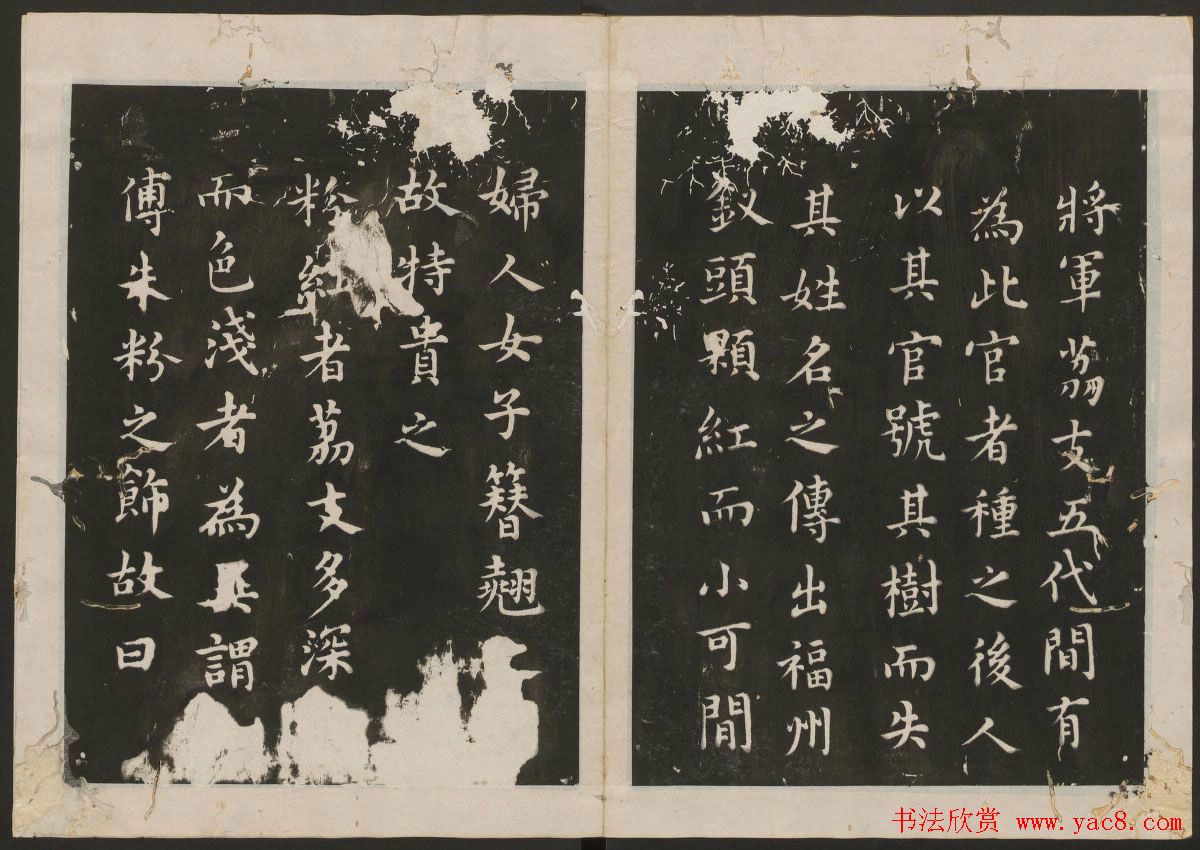 將軍茘支五代間有
為此官者種之後人
以其官號其樹而失
其姓名之傳出福州
釵頭顆紅而小可間
婦人女子簪翹
故特貴之
粉紅者茘支多深
而色淺者為異謂
傅朱粉之飾故曰
书法欣赏 www.yac8.com